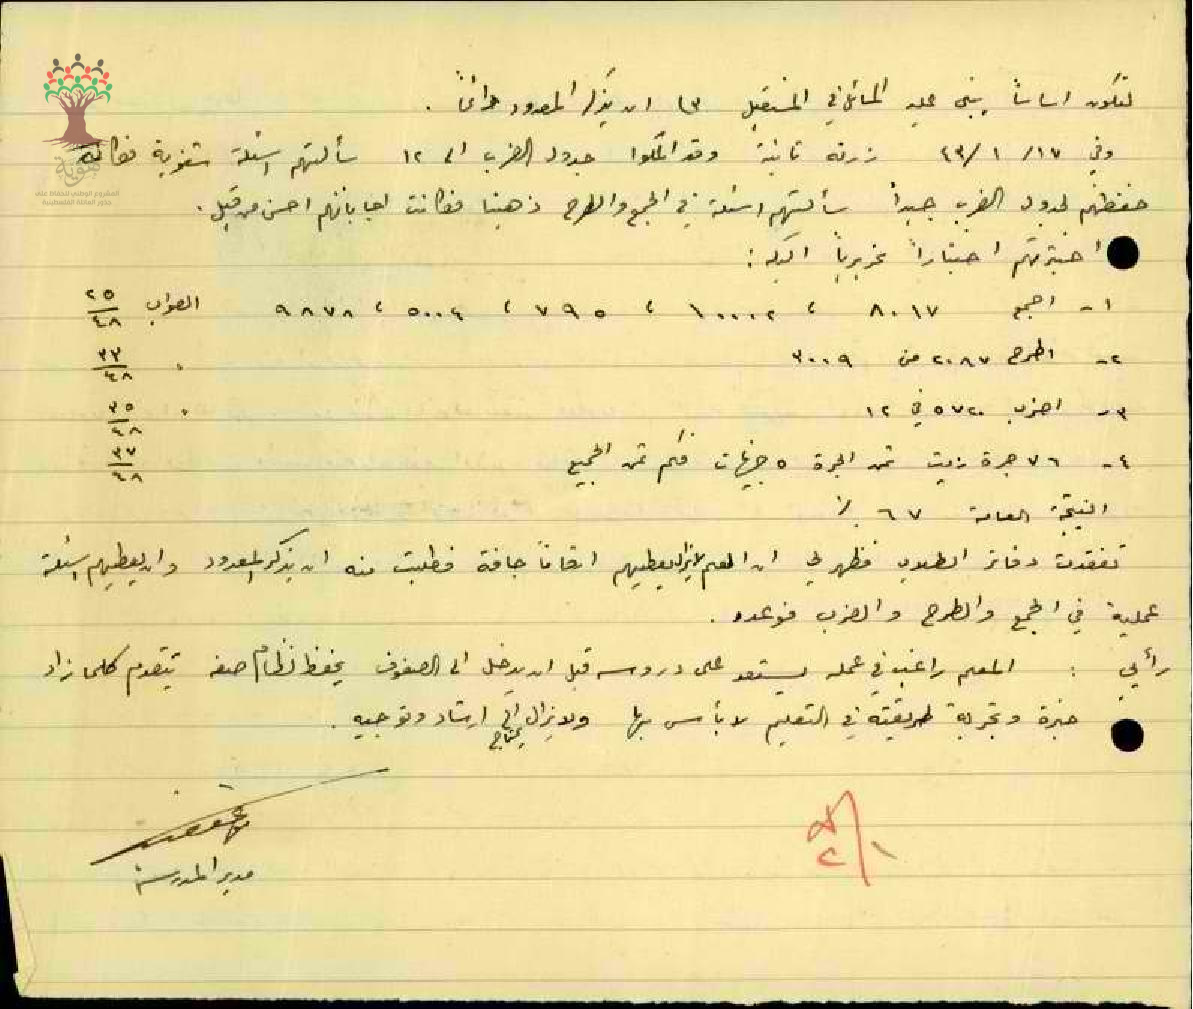 لتكون اساساً يبنى عليه المسائل في المستقبل (٣ ان يذكر المعدود دائماً .
وفي ١٧/ ١ /٤٣ زرته ثانية وقد اكملوا جدول الضرب الى ١٢ سألتهم اسئلة شفوية فكان
حفظهم لجدول الضرب جيداً سألتهم اسئلة في الجمع والطرح ذهنياً فكانت اجاباتهم احسن من قبل .
اختبرتهم اختباراً تحريرياً اليكه :
١- اجمع ٨٠١٧ ، ١٠٠٠٢ ، ٧٩٥ ، ٥٠٠٤ ، ٩٨٧٨ الصواب ٢٥/٤٨
٢- اطرح ٢٠٨٧ من ٣٠٠٩ " ٣٣/٤٨
٣- اضرب ٥٧٢٠ في ١٢ " ٣٥/٤٨
٤- ٧٦ جرة زيت ثمن الجرة ٥ جنيهات فكم ثمن الجميع ٣٧/٤٨
النتيجة العامة ٦٧ ٪
تفقدت دفاتر الطلاب فظهر لي ان المعلم لا يزال يعطيهم ارقاماً جافة فطلبت منه ان يذكر المعدود وان يعطيهم اسئلة
عملية في الجمع والطرح والضرب فوعد .
رأيي : المعلم راغب في عمله يستعد على دروسه قبل ان يدخل الى الصفوف يحفظ نظام صفه يتقدم كلما زاد
خبرة وتجربة طريقته في التعليم لا بأس بها ولا يزال يحتاج الى ارشاد وتوجيه .
مدير المدرسة
هوية
المشروع الوطني للحفاظ على
جذور العائلة الفلسطينية